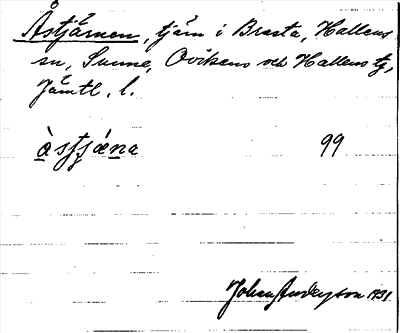 Åstjärnen, tjärn i Brasta, Hallens
sn, Sunne, Ovikens och Hallens tg,
Jämtl. l.
àstjæna 99
Johan Anderson 1931